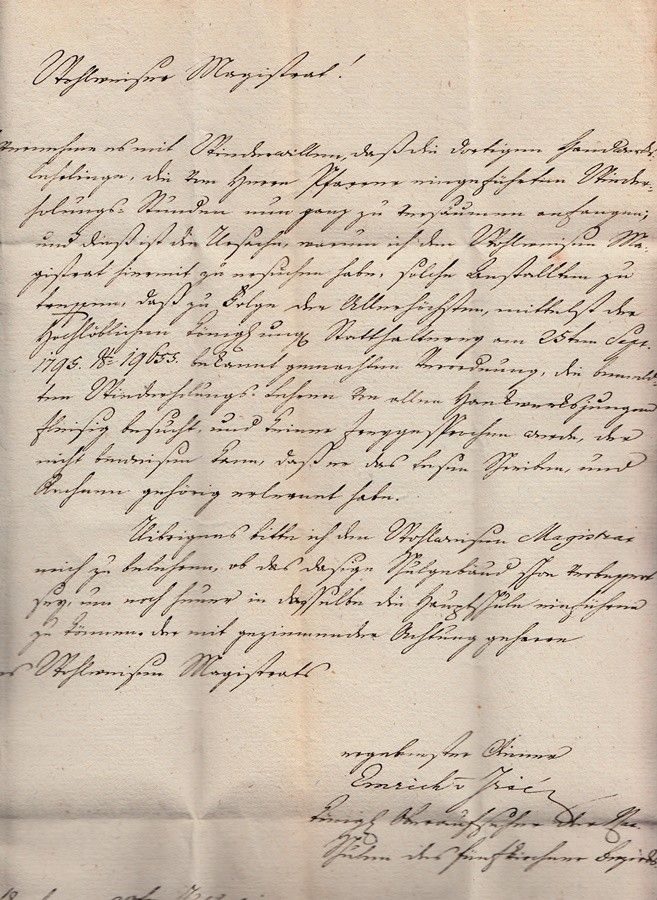 Wohlweiser Magistrat!
vernehme es mit Wiederwillen, daß die dortigen Handwerks-
Lehrlinge, die vom Herrn Pfarrer eingeführten Wieder-
holungs-Stunden nun ganz zu versäumen anfangen;
und dieß ist die Ursache, warum ich den Wohlweisen Ma-
gistrat hiermit zu ersuchen habe, solche Anstallten zu
treffen, daß zu Folge der Allerhöchsten, mittelst der
Hochlöblichen königl. ung. Statthalterey am 25ten Sept.
1795. № 19653. bekannt gemachten Verordnung, die bemeld-
ten Wiederholungs-Lehren von allen Handwerksjungen
fleisig besucht, und keiner freygesprochen werde, der
nicht beweisen kann, daß er das Lesen Schreiben, und
Rechnen gehörig erlernet habe.
Uibrigens bitte ich den Wohlweisen Magistrat
mich zu belehren, ob das dasige Schulgebäud schon verbessert
sey, um noch heuer in dasselbe die Hauptschule einführen
zu können, der mit geziemender Achtung geharre
Wohlweisen Magistrats
ergebenster Diener
Emrich v
königl. Oberaufseher der
Schulen des Fünfkirchner Bezirks